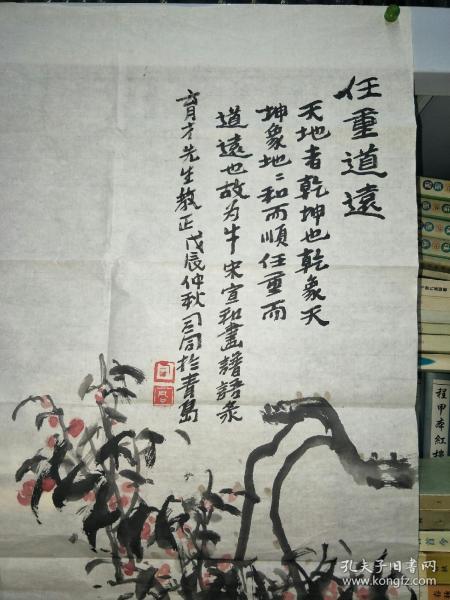 任重道遠
天地者乾坤也乾象天
坤象地〻和而順任重而
道遠也故为牛宋宣和畫譜語录
育才先生教正戊辰仲秋司同於青島
程甲本紅樓
孔夫子旧书网
www.kongfz.com